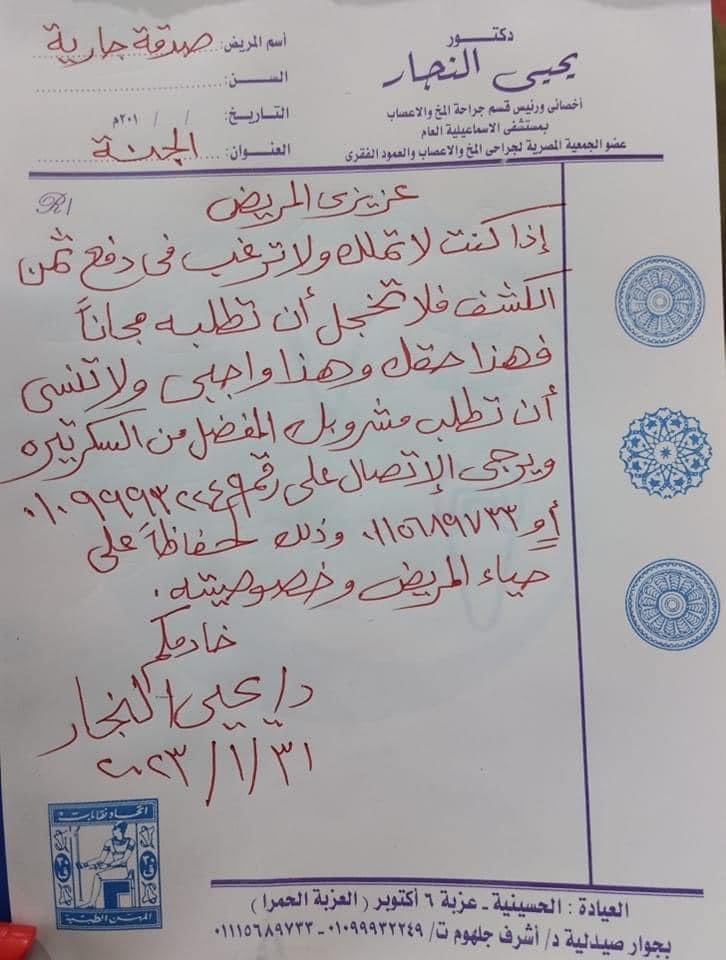 دكتور
يحيى النجار
أخصائى ورئيس قسم جراحة المخ والاعصاب
بمستشفى الاسماعيلية العام
عضو الجمعية المصرية لجراحى المخ والاعصاب والعمود الفقرى
أسم المريض: صدقة جارية
السن:
التاريخ: / / ٢٠١م
العنوان: الجنة
R/
عزيزى المريض
إذا كنت لا تملك ولا ترغب فى دفع ثمن
الكشف فلا تخجل أن تطلبه مجاناً
فهذا حقك وهذا واجبى ولا تنسى
أن تطلب مشروبك المفضل من السكرتيره
ويرجى الإتصال على رقم ٠١٠٩٩٩٣٢٢٤٩
أو ٠١١١٥٦٨٩٧٣٣ وذلك حفاظاً على
حياء المريض وخصوصيته.
خادمكم
د/ يحيى النجار
٣١/١/٢٠٢٣
اتحاد نقابات
المهن الطبية
العيادة : الحسينية - عزبة ٦ أكتوبر ( العزبة الحمرا )
بجوار صيدلية د/ أشرف جلهوم ت/ ٠١٠٩٩٩٣٢٢٤٩ - ٠١١١٥٦٨٩٧٣٣